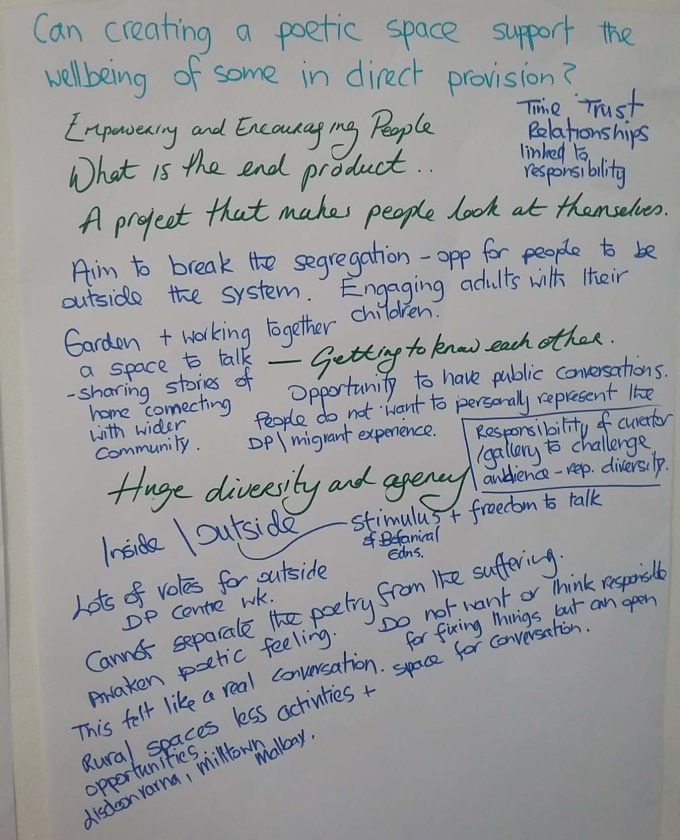 Can creating a poetic space support the
wellbeing of some in direct provision?
Empowering and Encouraging People
Time Trust
Relationships
linked to
responsibility
What is the end product..
A project that makes people look at themselves.
Aim to break the segregation - opp for people to be
outside the system. Engaging adults with their
children.
Garden + working together
a space to talk
- sharing stories of
home connecting
with wider
community.
— Getting to know each other.
Opportunity to have public conversations.
People do not want to personally represent the
DP \ migrant experience.
Responsibility of curator
/gallery to challenge
audience - rep. diversity.
Huge diversity and agency
Inside \ outside
stimulus + freedom to talk
of Botanical
Gdns.
Lots of votes for outside
DP Centre wk.
Cannot separate the poetry from the suffering.
Awaken poetic feeling.
Do not want or think responsible
for fixing things but an open
space for conversation.
This felt like a real conversation.
Rural spaces less activities +
opportunities
Lisdoonvarna, Milltown
Malbay.